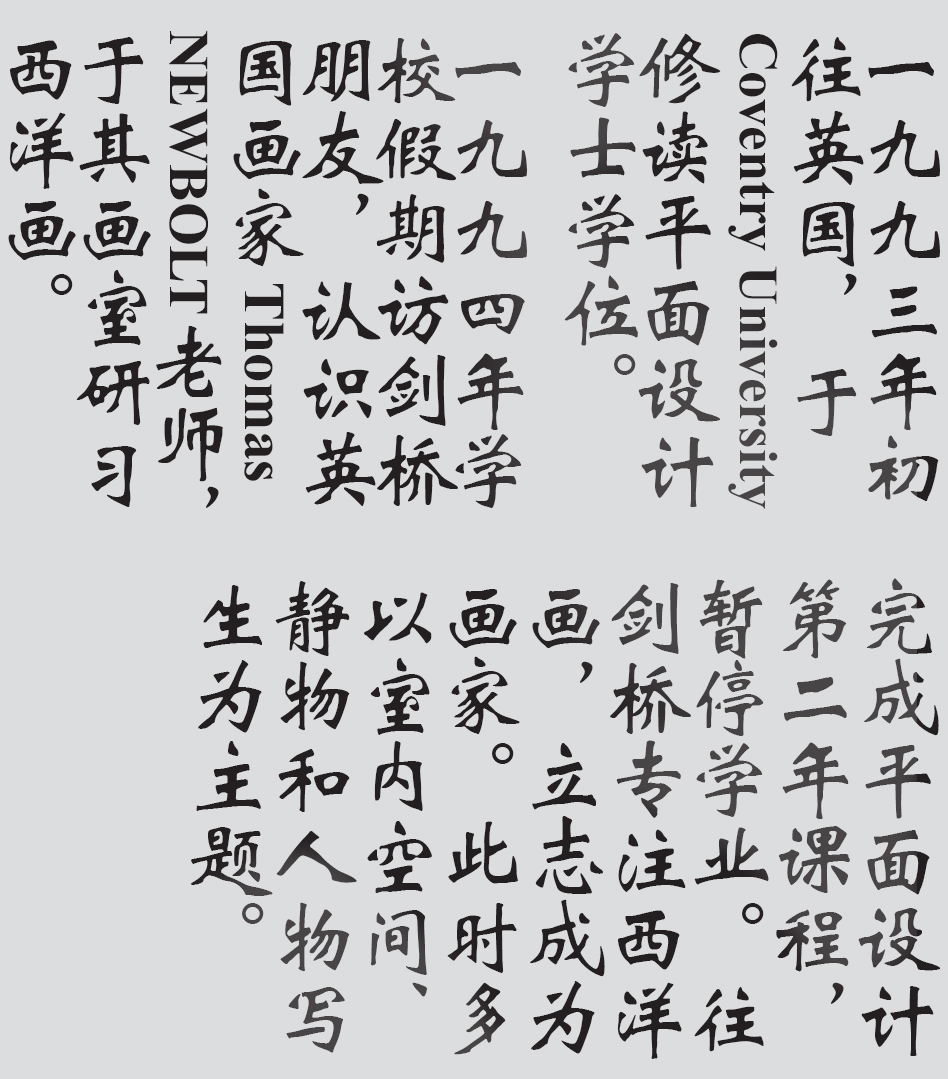 一九九三年初
往英国，于
Coventry University
修读平面设计
学士学位。
一九九四年学
校假期访剑桥
朋友，认识英
国画家 Thomas
NEWBOLT 老师，
于其画室研习
西洋画。
完成平面设计
第二年课程，
暂停学业。往
剑桥专注西洋
画，立志成为
画家。此时多
以室内空间、
静物和人物写
生为主题。